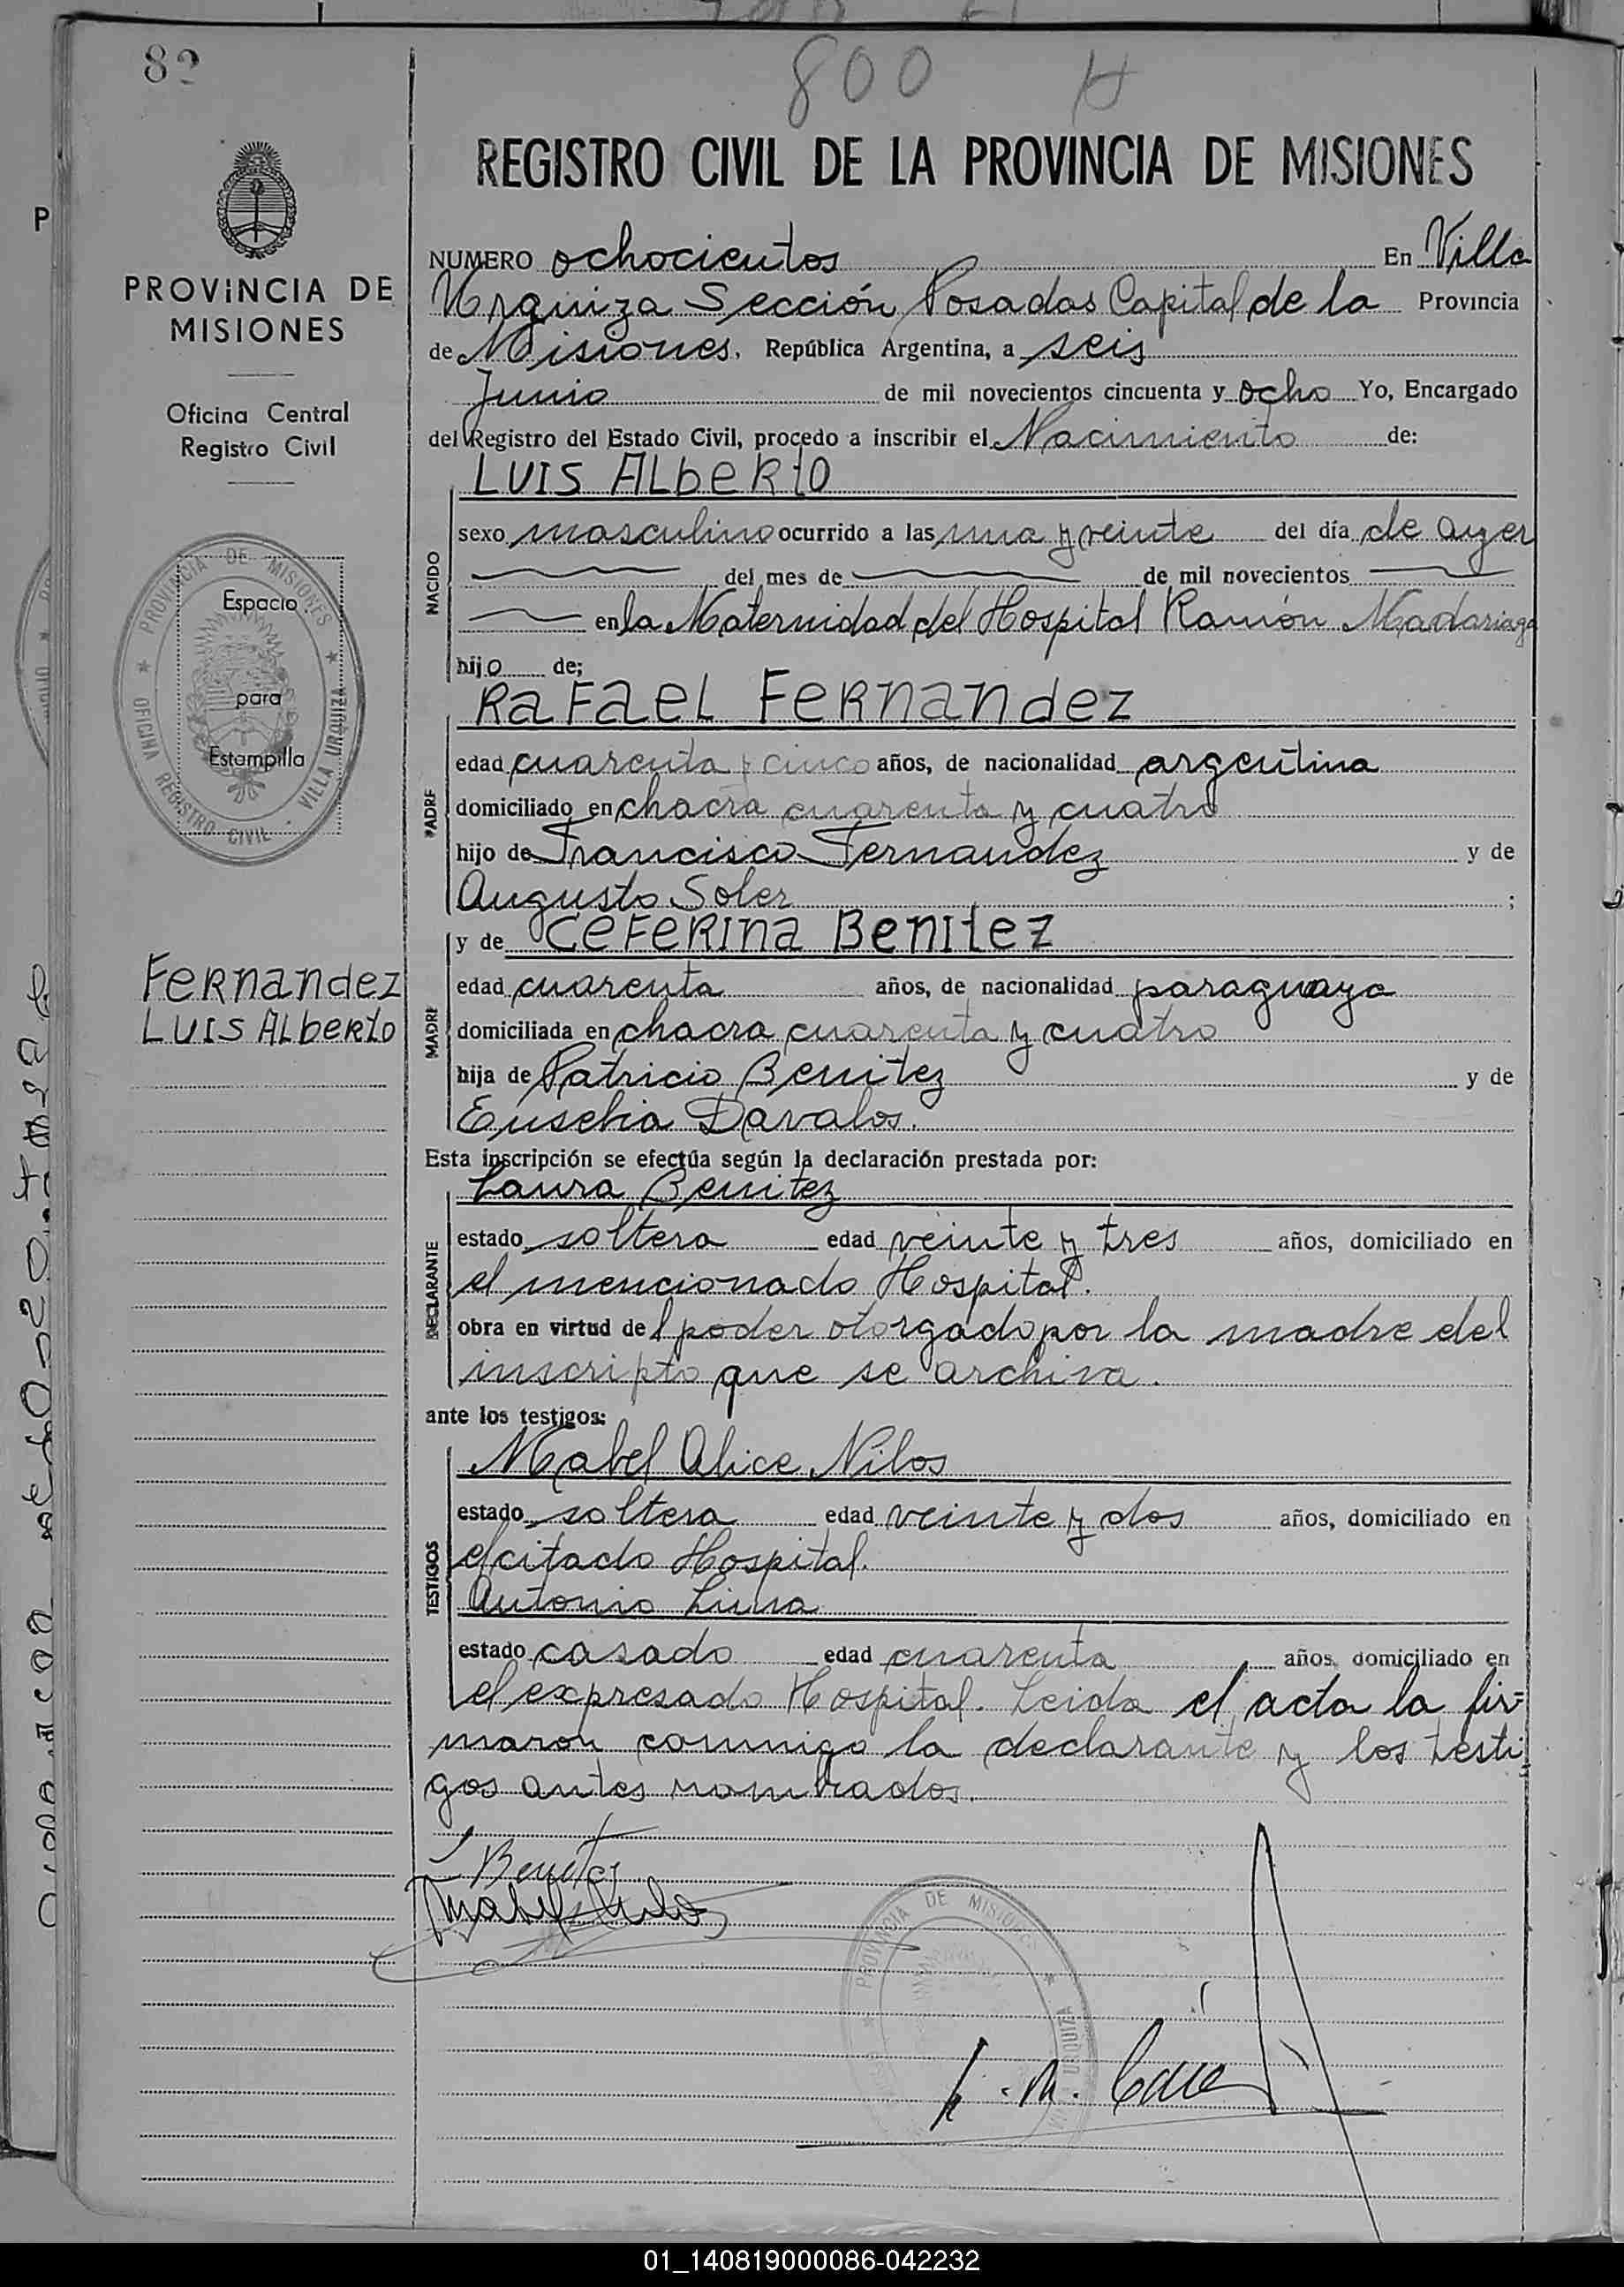 82
800 H
PROVINCIA DE
MISIONES
Oficina Central
Registro Civil
PROVINCIA DE MISIONES
OFICINA REGISTRO CIVIL - VILLA URQUIZA
Espacio
para
Estampilla
Fernandez
Luis Alberto
REGISTRO CIVIL DE LA PROVINCIA DE MISIONES
NUMERO ochocientos En Villa
Urquiza Sección Posadas Capital de la Provincia
de Misiones, República Argentina, a seis
Junio de mil novecientos cincuenta y ocho Yo, Encargado
del Registro del Estado Civil, procedo a inscribir el Nacimiento de:
LUIS ALbeRtO
NACIDO
sexo masculino ocurrido a las una y veinte del día de ayer
del mes de de mil novecientos
en la Maternidad del Hospital Ramón Madariaga
hijo de;
RaFaeL FeRnandez
PADRE
edad cuarenta y cinco años, de nacionalidad argentina
domiciliado en chacra cuarenta y cuatro
hijo de Francisco Fernandez y de
Augusta Soler ;
y de CeFeRina Benitez
MADRE
edad cuarenta años, de nacionalidad paraguaya
domiciliada en chacra cuarenta y cuatro
hija de Patricio Benitez y de
Eusebia Davalos.
Esta inscripción se efectúa según la declaración prestada por:
Laura Benitez
DECLARANTE
estado soltera edad veinte y tres años, domiciliado en
el mencionado Hospital.
obra en virtud del poder otorgado por la madre del
inscripto que se archiva.
ante los testigos:
Mabel Alice Nilos
TESTIGOS
estado soltera edad veinte y dos años, domiciliado en
el citado Hospital.
Antonio Lima
estado casado edad cuarenta años, domiciliado en
el expresado Hospital. Leida el acta la fir=
maron conmigo la declarante y los testi=
gos antes nombrados.
L Benitez
PROVINCIA DE MISIONES
URQUIZA
01_140819000086-042232